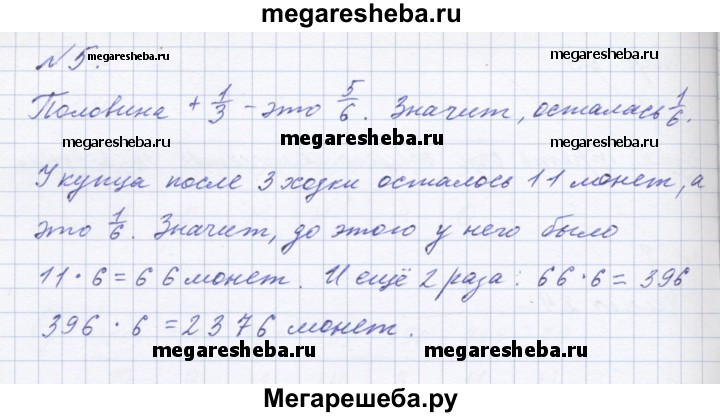 megaresheba.ru
N 5. megaresheba.ru megaresheba.ru
Половина + 1/3 - это 5/6. Значит, осталась 1/6.
megaresheba.ru megaresheba.ru megaresheba.ru
У купца после 3 ходки осталось 11 монет, а
это 1/6. Значит, до этого у него было
11 · 6 = 66 монет. И ещё 2 раза: 66 · 6 = 396
396 · 6 = 2376 монет.
megaresheba.ru megaresheba.ru
Мегарешеба.ру